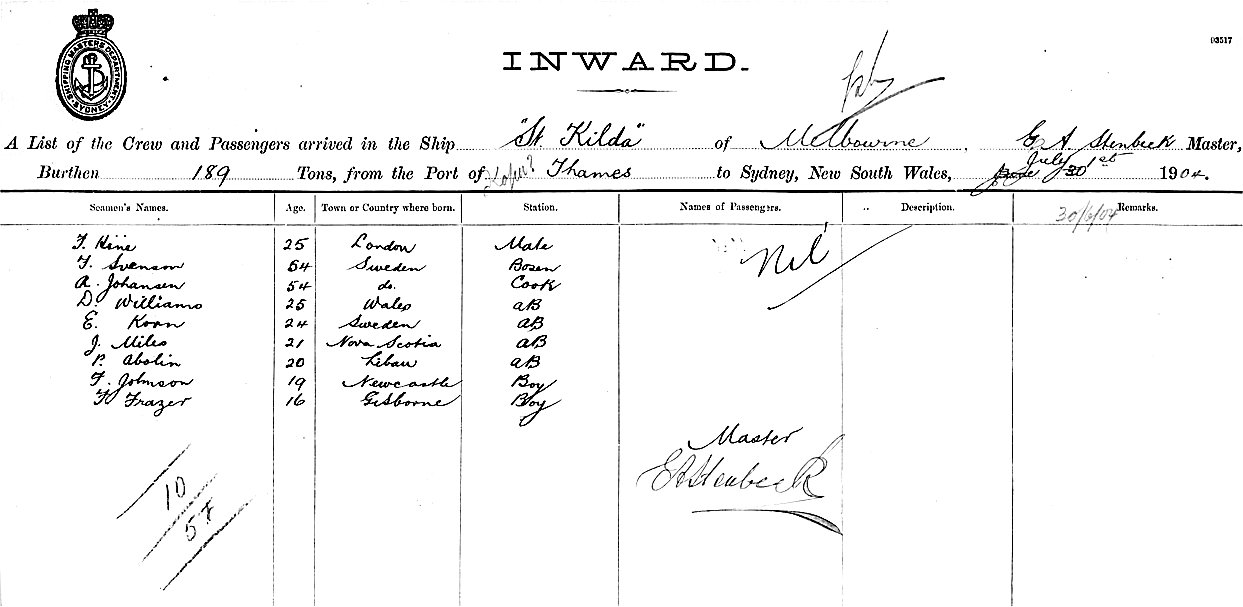 SHIPPING MASTERS DEPARTMENT. SYDNEY.
03517
INWARD.
A List of the Crew and Passengers arrived in the Ship "St. Kilda" of Melbourne, Master,
July 1st
Burthen 189 Tons, from the Port of Thames to Sydney, New South Wales, 30 1904.
Seamen's Names. Age. Town or Country where born. Station. Names of Passengers. Description. Remarks.
30/6/04
25 London Mate Nil
F. Svenson 54 Sweden Bosen
A. Johansen 54 do. Cook
D. Williams 25 Wales AB
E. Korn 24 Sweden AB
J. Miles 21 Nova Scotia AB
P. Abolin 20 Libau AB
F. Johnson 19 Newcastle Boy
Frazer 16 Gisborne Boy
Master
10